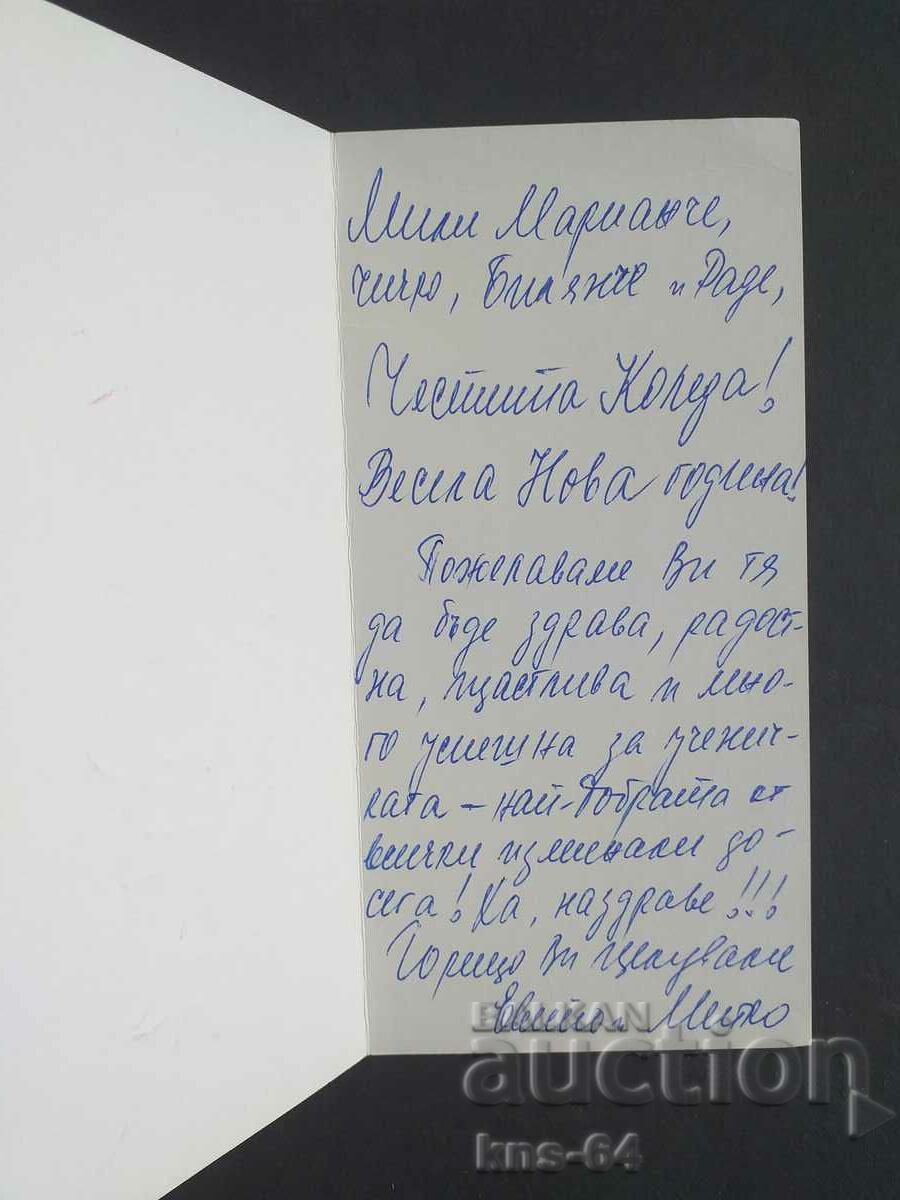 Мили Марианче,
чичо, Билянче и Раде,
Честита Коледа!
Весела Нова година!
Пожелаваме Ви тя
да бъде здрава, радост-
на, щастлива и мно-
го успешна за ученич-
ката - най-добрата от
всички изминали до-
сега! Ха, наздраве!!!
Горещо Ви целуваме
и Митко
BALKAN
auction
kns-64